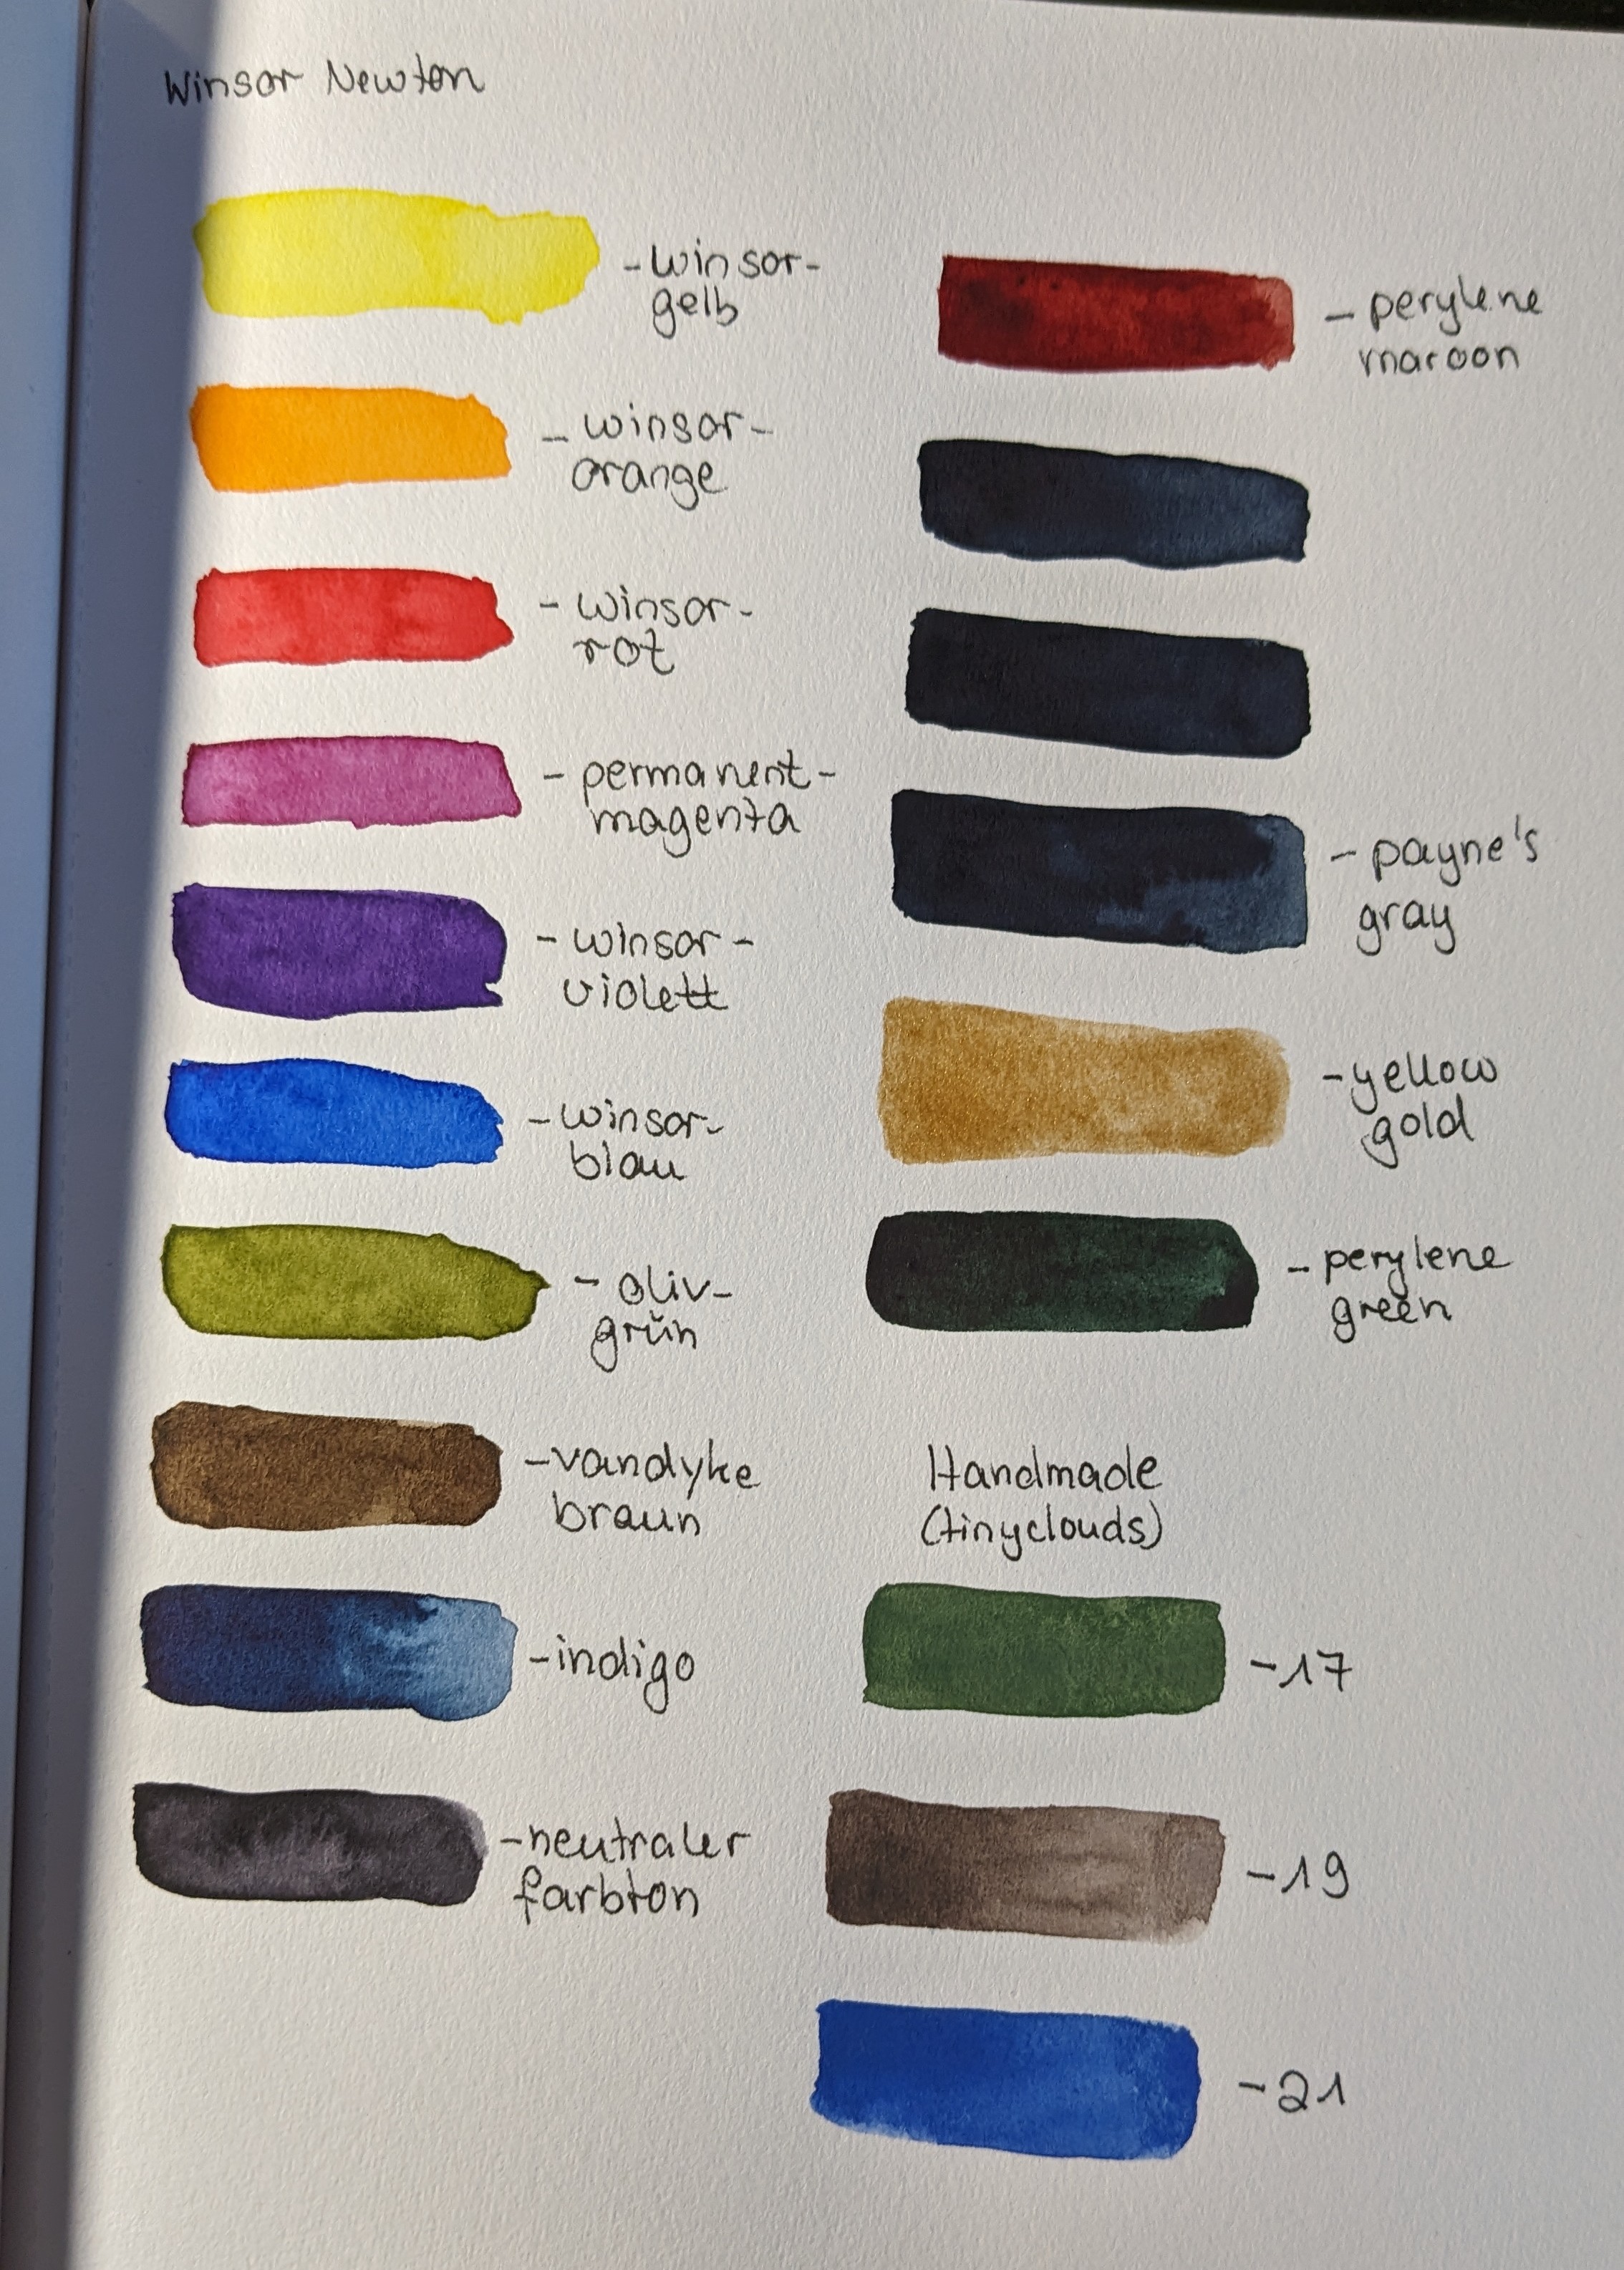 Winsor Newton
- winsor-
gelb
- winsor-
orange
- winsor-
rot
- permanent-
magenta
- winsor-
violett
- winsor-
blau
- oliv-
grün
- vandyke
braun
- indigo
- neutraler
farbton
- perylene
maroon
- payne's
gray
- yellow
gold
- perylene
green
Handmade
(tinyclouds)
- 17
- 19
- 21